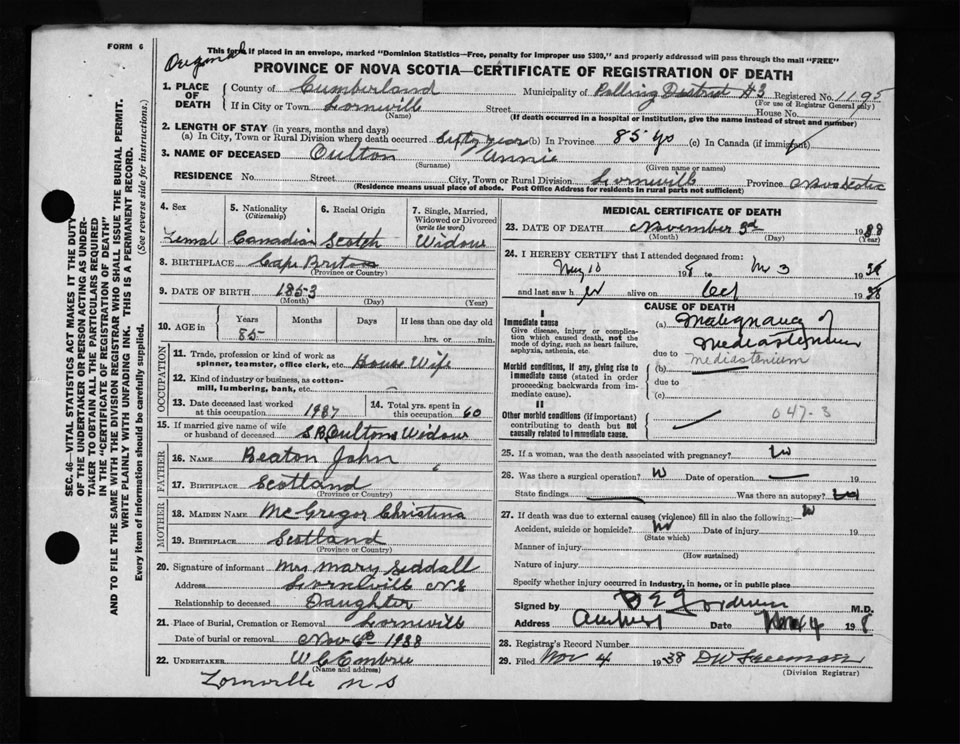 FORM 6
Original
This form if placed in an envelope, marked "Dominion Statistics—Free, penalty for improper use $300," and properly addressed will pass through the mail "FREE"
PROVINCE OF NOVA SCOTIA—CERTIFICATE OF REGISTRATION OF DEATH
1. PLACE OF DEATH County of Cumberland Municipality of Polling District #3 Registered No. 1195
(For use of Registrar General only)
If in City or Town Lornville Street House No.
(Name) (If death occurred in a hospital or institution, give the name instead of street and number)
2. LENGTH OF STAY (in years, months and days)
(a) In City, Town or Rural Division where death occurred Sixty years (b) In Province 85 yrs (c) In Canada (if immigrant)
3. NAME OF DECEASED Oulton Annie
(Surname) (Given name or names)
RESIDENCE No. Street City, Town or Rural Division Lornville Province Nova Scotia
(Residence means usual place of abode. Post Office Address for residents in rural parts not sufficient)
4. Sex 5. Nationality (Citizenship) 6. Racial Origin 7. Single, Married, Widowed or Divorced (write the word)
Femal Canadian Scotch Widow
8. BIRTHPLACE Cape Breton
(Province or Country)
9. DATE OF BIRTH 1853
(Month) (Day) (Year)
10. AGE in Years Months Days If less than one day old
85 hrs. or min.
OCCUPATION
11. Trade, profession or kind of work as spinner, teamster, office clerk, etc. House Wife
12. Kind of industry or business, as cotton-mill, lumbering, bank, etc.
13. Date deceased last worked at this occupation 1937 14. Total yrs. spent in this occupation 60
15. If married give name of wife or husband of deceased S B Oultons Widow
FATHER
16. NAME Beaton John
17. BIRTHPLACE Scotland
(Province or Country)
MOTHER
18. MAIDEN NAME McGregor Christina
19. BIRTHPLACE Scotland
(Province or Country)
20. Signature of informant Mrs Mary Siddall
Address Lornville N S
Relationship to deceased Daughter
21. Place of Burial, Cremation or Removal Lornville
Date of burial or removal Nov 6th 1938
22. UNDERTAKER W C Embree
(Name and address)
Lornville N S
MEDICAL CERTIFICATE OF DEATH
23. DATE OF DEATH November 3rd 1938
(Month) (Day) (Year)
24. I HEREBY CERTIFY that I attended deceased from:
May 10 to 3 1938
and last saw h er alive on Oct 1938
CAUSE OF DEATH
I
Immediate cause
Give disease, injury or complication which caused death, not the mode of dying, such as heart failure, asphyxia, asthenia, etc.
(a) Malignancy of
Mediastinum
due to mediastenium
Morbid conditions, if any, giving rise to immediate cause (stated in order proceeding backwards from immediate cause).
(b)
due to
(c)
II
Other morbid conditions (if important) contributing to death but not causally related to immediate cause.
047-3
25. If a woman, was the death associated with pregnancy? No
26. Was there a surgical operation? No Date of operation 19
State findings Was there an autopsy? No
27. If death was due to external causes (violence) fill in also the following:— No
Accident, suicide or homicide? No Date of injury 19
(State which)
Manner of injury
(How sustained)
Nature of injury
Specify whether injury occurred in industry, in home, or in public place
Signed by M.D.
Address Amherst Date Nov 4 1938
28. Registrar's Record Number
29. Filed Nov 4 1938 D W Freeman
(Division Registrar)
SEC. 46—VITAL STATISTICS ACT MAKES IT THE DUTY
OF THE UNDERTAKER OR PERSON ACTING AS UNDER-
TAKER TO OBTAIN ALL THE PARTICULARS REQUIRED
IN THE "CERTIFICATE OF REGISTRATION OF DEATH"
AND TO FILE THE SAME WITH THE DIVISION REGISTRAR WHO SHALL ISSUE THE BURIAL PERMIT.
WRITE PLAINLY WITH UNFADING INK. THIS IS A PERMANENT RECORD.
Every item of information should be carefully supplied. (See reverse side for instructions.)